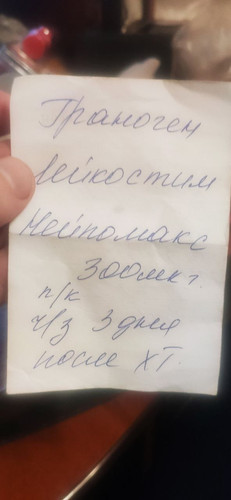 Граноген
Лейкостим
Нейпомакс
300мкг.
п/к
ч/з 3 дня
после ХТ.